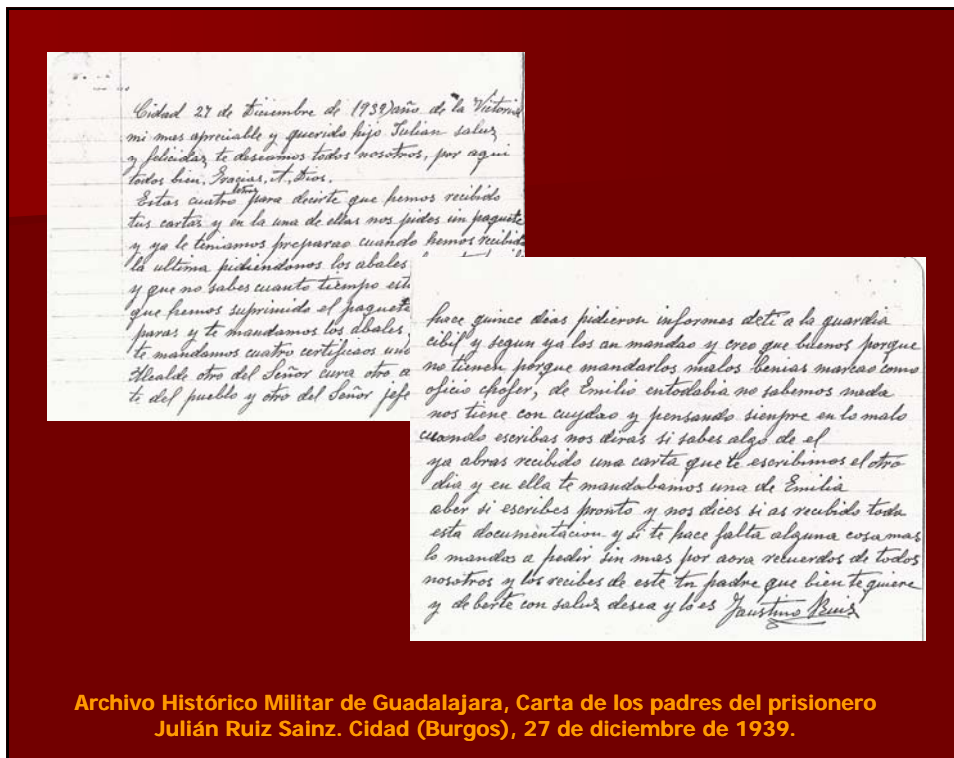 Cidad 27 de Diciembre de (1939) año de la Victoria
mi mas apreciable y querido hijo Julian saluz
y felicidaz te deseamos todos nosotros, por aqui
todos bien, Gracias, A, Dios.
Estas cuatro letras para decirte que hemos recibido
tus cartas y en la una de ellas nos pides un paquete
y ya le teniamos preparao cuando hemos recibido
la ultima pidiendonos los abales
y que no sabes cuanto tiempo est
que hemos suprimido el paquete
paras y te mandamos los abales,
te mandamos cuatro certificaos uno
Alcalde otro del Señor cura otro
te del pueblo y otro del Señor jefe
hace quince dias pidieron informes deti a la guardia
cibil y segun ya los an mandao y creo que buenos porque
no tienen porque mandarlos malos benias marcao como
oficio chofer, de Emilio entodabia no sabemos nada
nos tiene con cuydao y pensando sienpre en lo malo
cuando escribas nos diras si sabes algo de el
ya abras recibido una carta que te escribimos el otro
dia y en ella te mandabamos una de Emilia
aber si escribes pronto y nos dices si as recibido toda
esta documentacion y si te hace falta alguna cosa mas
lo mandas a pedir sin mas por aora recuerdos de todos
nosotros y los recibes de este tu padre que bien te quiere
y de berte con saluz desea y lo es Faustino Ruiz
Archivo Histórico Militar de Guadalajara, Carta de los padres del prisionero
Julián Ruiz Sainz. Cidad (Burgos), 27 de diciembre de 1939.